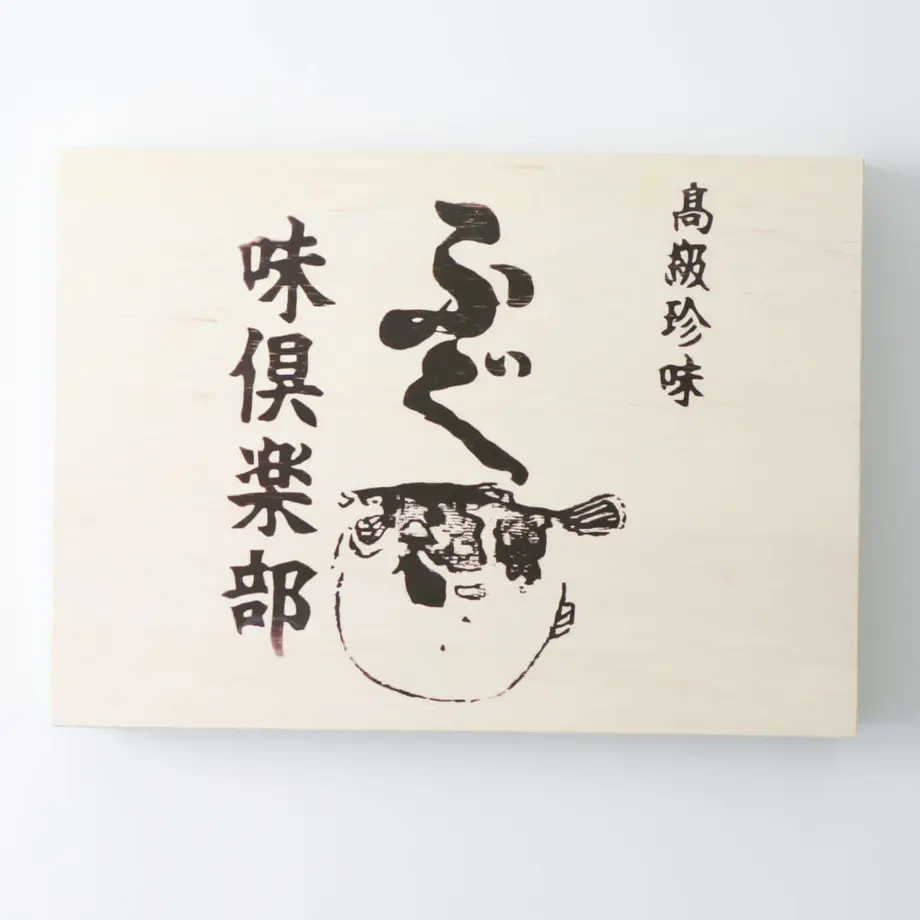 高級珍味
ふぐ
味倶楽部